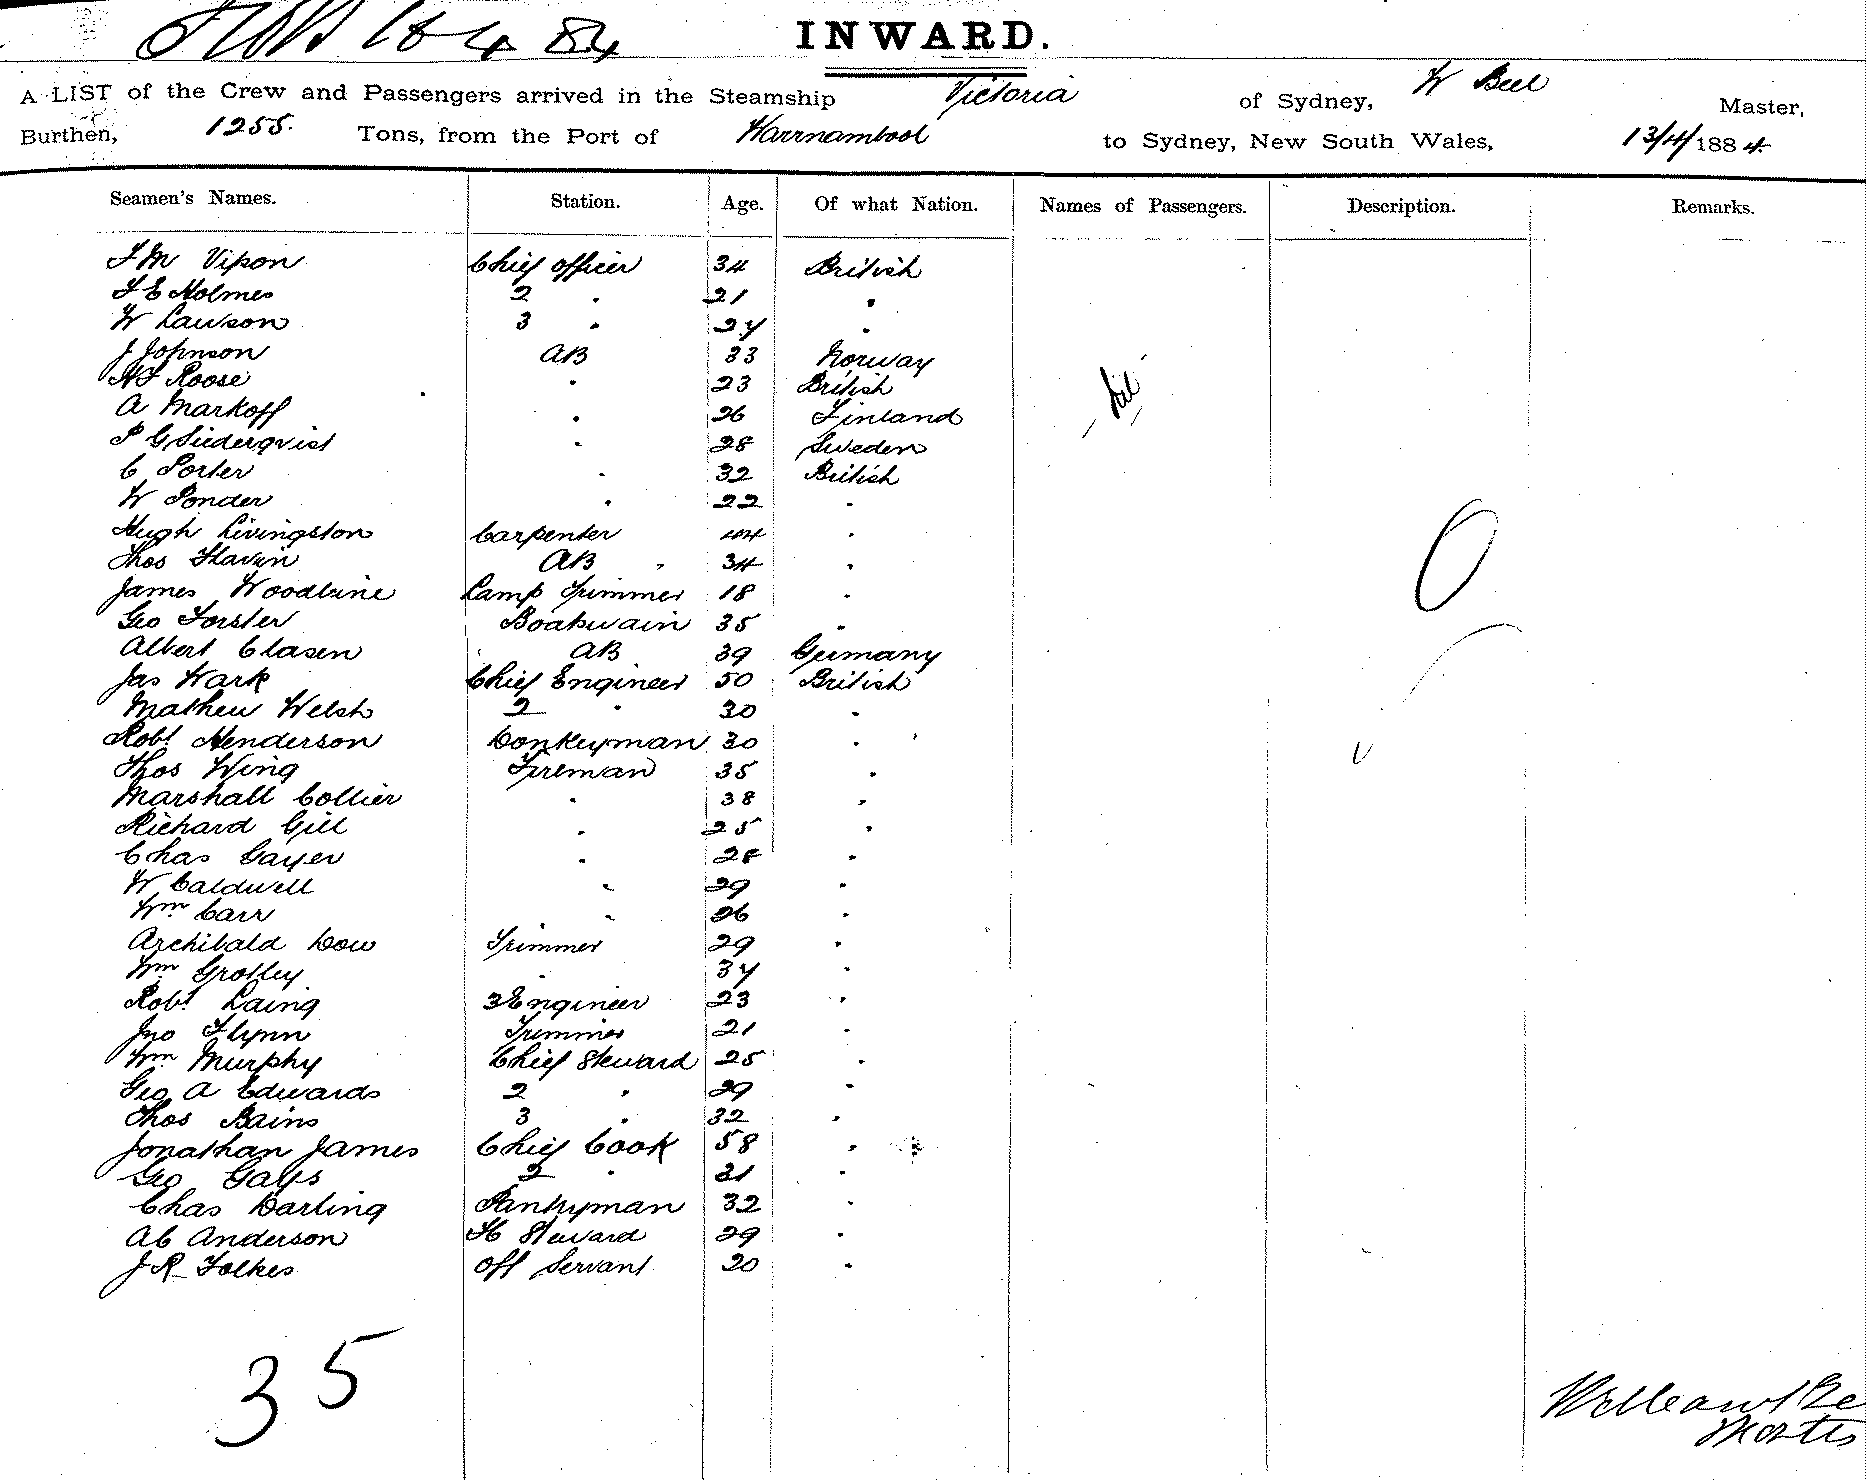 INWARD.
A LIST of the Crew and Passengers arrived in the Steamship Victoria of Sydney, W Bell Master,
Burthen, 1255. Tons, from the Port of Warrnambool to Sydney, New South Wales, 13/4/1884
Seamen's Names. Station. Age. Of what Nation. Names of Passengers. Description. Remarks.
J M Vipon Chief officer 34 British
J E Holmes 2 " 21 "
W Lawson 3 " 27 "
J Johnson AB 33 Norway
H J Roose " 23 British
A Markoff " 26 Finland
P G Siederqvist " 28 Sweden
C Porter " 32 British
W Ponder " 22 "
Hugh Livingston Carpenter 44 "
Thos Flavin AB " 34 "
James Woodbine Lamp Trimmer 18 "
Geo Forster Boatswain 35 "
Albert Clasen AB 39 Germany
Jas Wark Chief Engineer 50 British
Mathew Welsh 2 " 30 "
Robt Henderson Donkeyman 30 "
Thos Wing Fireman 35 "
Marshall Collier " 38 "
Richard Gill " 25 "
Chas Gayer " 28 "
W Caldwell " 29 "
Wm Carr " 26 "
Archibald Dow Trimmer 29 "
Wm Grolley " 37 "
Robt Laing 3 Engineer 23 "
Jno Flynn Trimmer 21 "
Wm Murphy Chief Steward 25 "
Geo A Edwards 2 " 29 "
Thos Bains 3 " 32 "
Jonathan James Chief Cook 58 "
Geo Gays 2 " 21 "
Chas Darling Pantryman 32 "
A C Anderson Steward 29 "
J R Folkes Off Servant 20 "
Nil
0
35